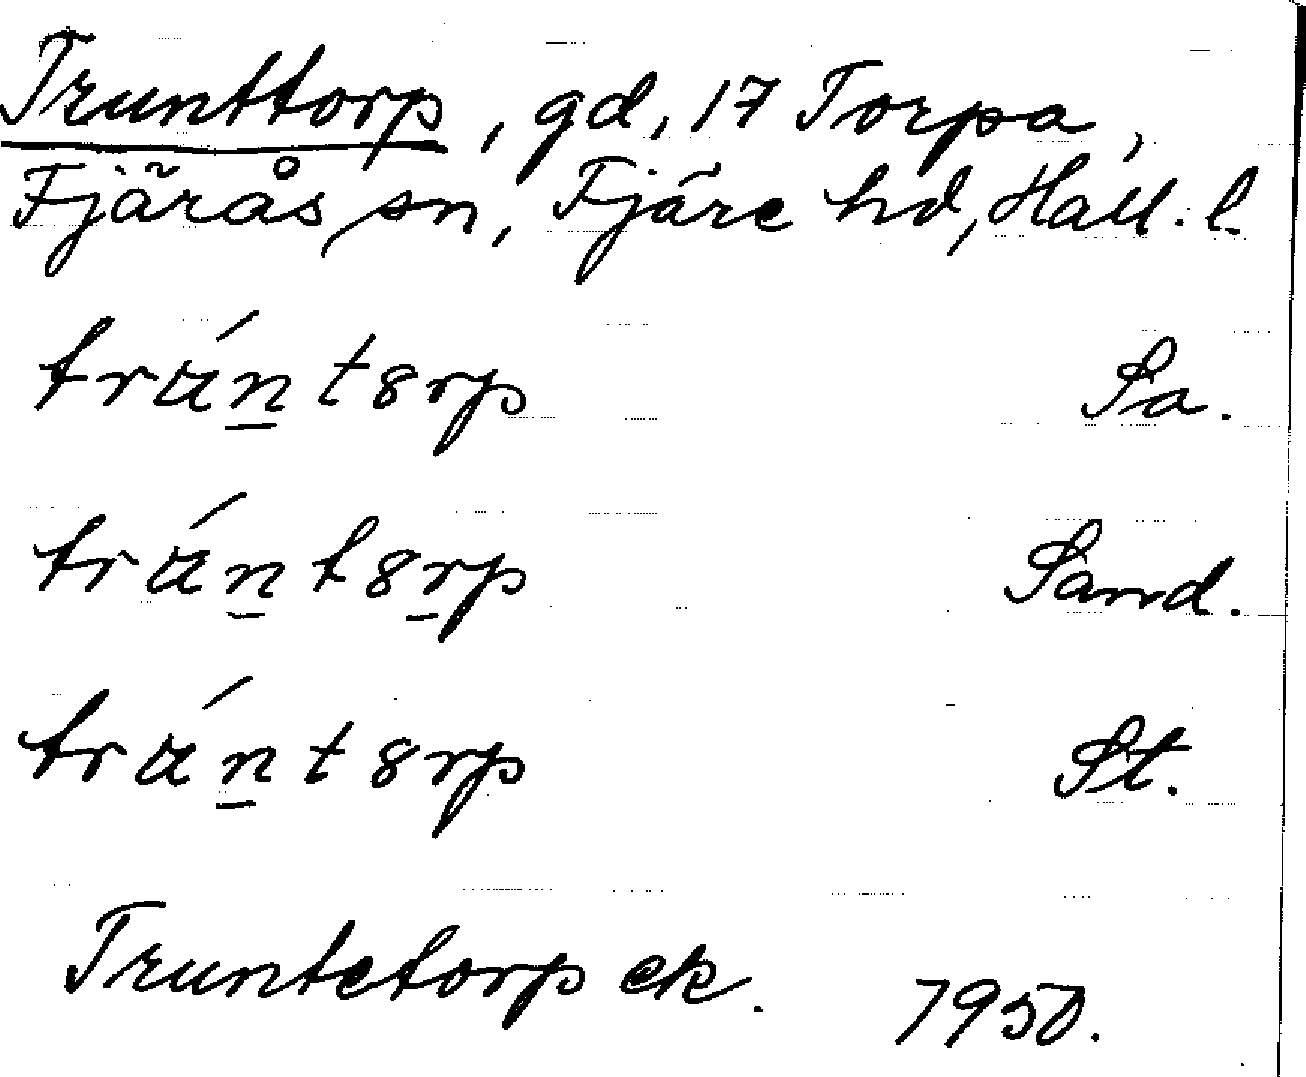 Trunttorp, gd, 17 Torpa,
Fjärås sn, Fjäre hd, Hall. l.
Sa.
Sand.
St.
Truntetorp ek. 1950.